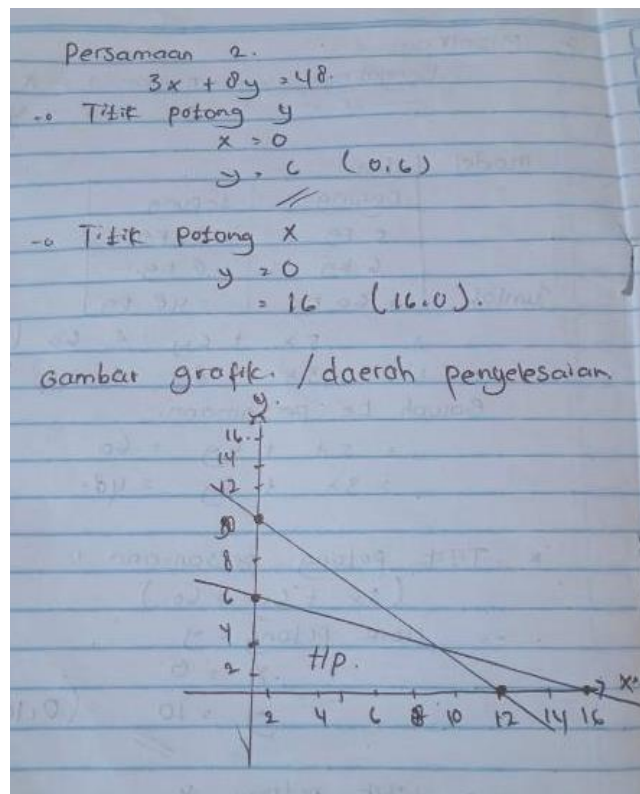 Persamaan 2.
3x + 8y = 48.
-o Titik potong y
x = 0
y = 6 (0,6)
-o Titik potong x
y = 0
= 16 (16.0).
Gambar grafik. / daerah penyelesaian
y.
16
14
12
10
8
6
4
2
Hp.
x
2 4 6 8 10 12 14 16